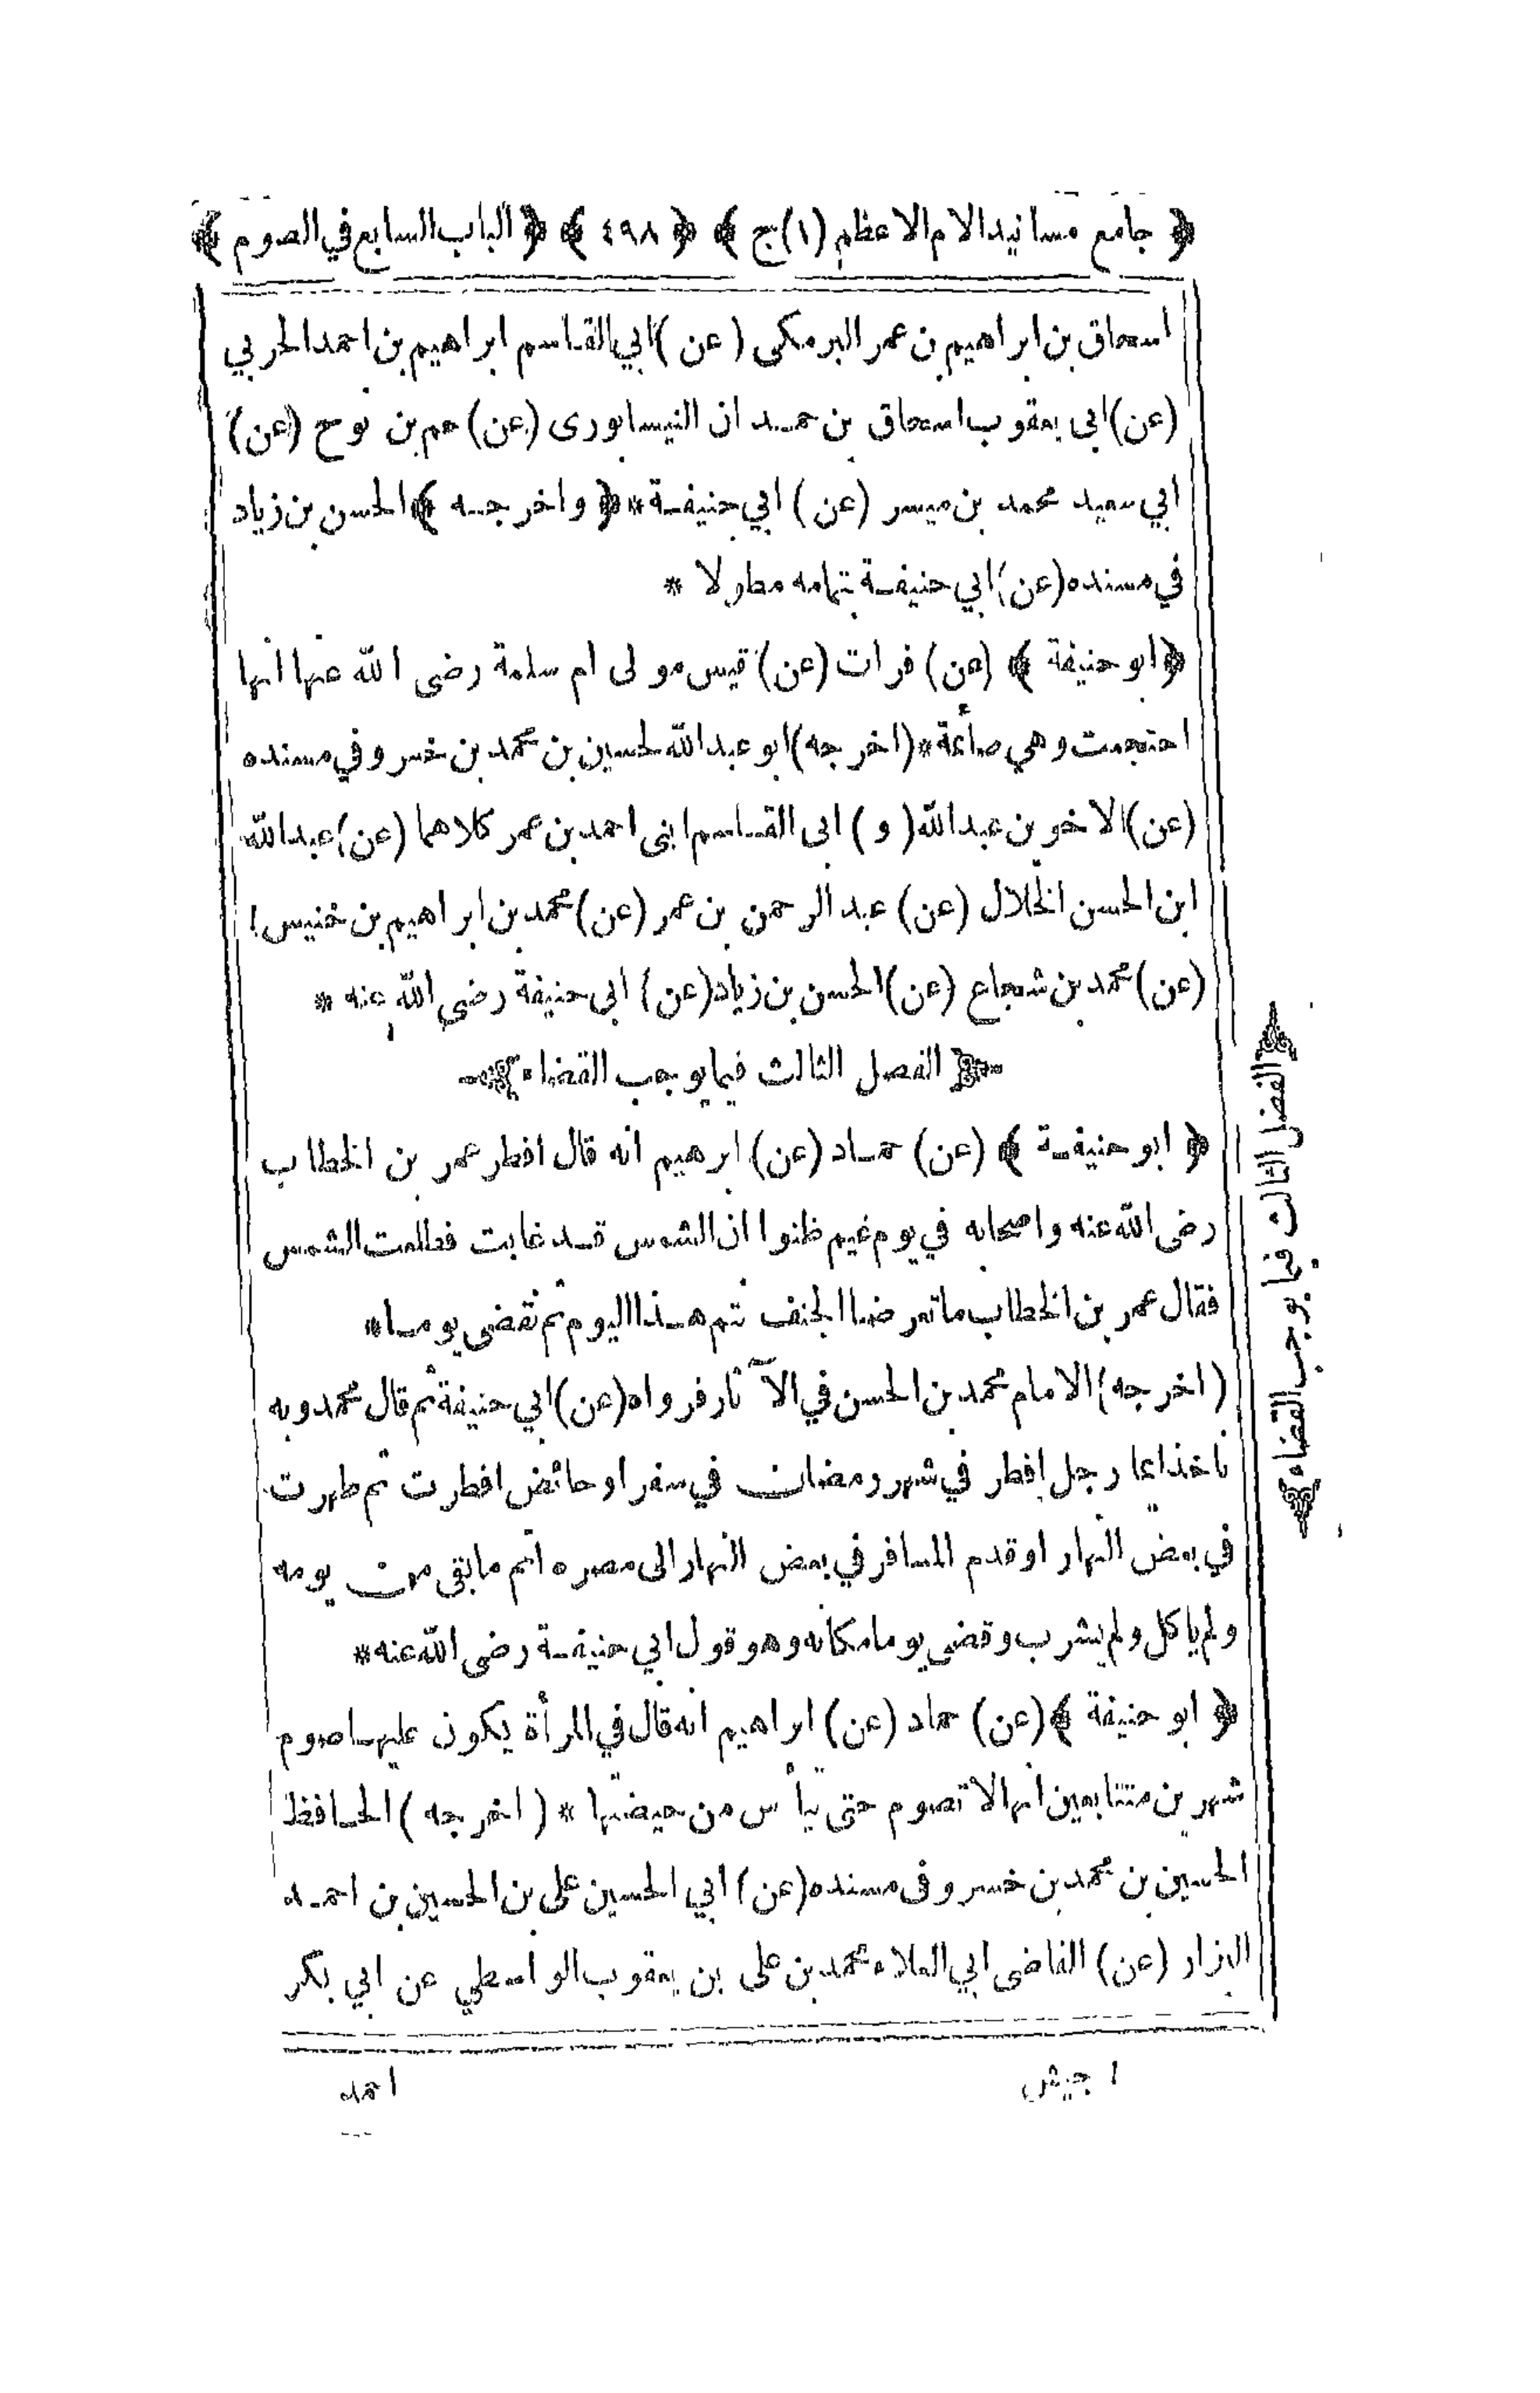 ﴿ جامع مسانيد الامام الاعظم (١) ج ﴾ ﴿ ٤٩٨ ﴾ ﴿ الباب السابع في الصوم ﴾
اسحاق بن ابراهيم بن عمر البرمكى (عن) ابي القاسم ابراهيم بن احمد الحربي
(عن) ابى يعقوب اسحاق بن حمدان النيسابورى (عن) حم بن نوح (عن)
ابي سعيد محمد بن ميسر (عن) ابي حنيفة * ﴿ واخرجه ﴾ الحسن بن زياد
في مسنده (عن) ابي حنيفة بتمامه مطولا *
﴿ ابو حنيفة ﴾ (عن) فرات (عن) قيس مولى ام سلمة رضى الله عنها انها
احتجمت وهي صائمة * (اخرجه) ابو عبد الله لحسين بن محمد بن خسرو في مسنده
(عن) الاخو بن عبد الله (و) ابى القاسم ابنى احمد بن عمر كلاهما (عن) عبد الله
ابن الحسن الخلال (عن) عبد الرحمن بن عمر (عن) محمد بن ابراهيم بن خنيس ١
(عن) محمد بن شجاع (عن) الحسن بن زياد (عن) ابى حنيفة رضي الله عنه *
الفصل الثالث فيما يوجب القضاء
﴿ ابو حنيفة ﴾ (عن) حماد (عن) ابرهيم انه قال افطر عمر بن الخطاب
رضى الله عنه واصحابه في يوم غيم ظنوا ان الشمس قد غابت فطلعت الشمس
فقال عمر بن الخطاب ما تعرضنا الجنف نتم هذا اليوم ثم نقضى يوما *
(اخرجه) الامام محمد بن الحسن في الآثار فرواه (عن) ابي حنيفة ثم قال محمد وبه
ناخذ ايما رجل افطر في شهر رمضان في سفر او حائض افطرت ثم طهرت
في بعض النهار او قدم المسافر في بعض النهار الى مصره اتم ما بقى من يومه
ولم ياكل ولم يشرب وقضى يوما مكانه وهو قول ابي حنيفة رضى الله عنه *
﴿ ابو حنيفة ﴾ (عن) حماد (عن) ابراهيم انه قال في المرأة يكون عليها صوم
شهرين متتابعين انها لا تصوم حتى تيأس من حيضتها * (اخرجه) الحافظ
الحسين بن محمد بن خسرو فى مسنده (عن) ابي الحسين على بن الحسين بن احمد
البزار (عن) القاضى ابي العلاء محمد بن على بن يعقوب الواسطي عن ابي بكر
١ جيش
احمد
الفصل الثالث فيما يوجب القضاء